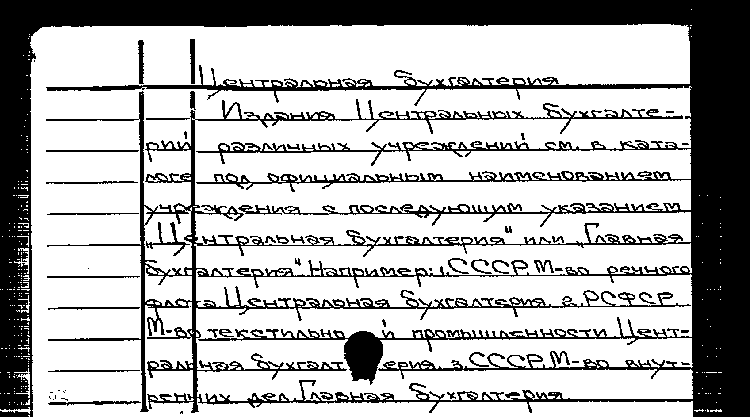 Центральная бухгалтерия
Издания Центральных бухгалте-
рий различных учреждений см. в ката-
логе под официальным наименованием
учреждения с последующим указанием
„Центральная бухгалтерия" или „Главная
бухгалтерия". Например: 1. СССР. М-во речного
флота. Центральная бухгалтерия. 2. РСФСР.
М-во текстильной промышленности. Цент-
ральная бухгалтерия. 3. СССР. М-во внут-
ренних дел. Главная бухгалтерия.